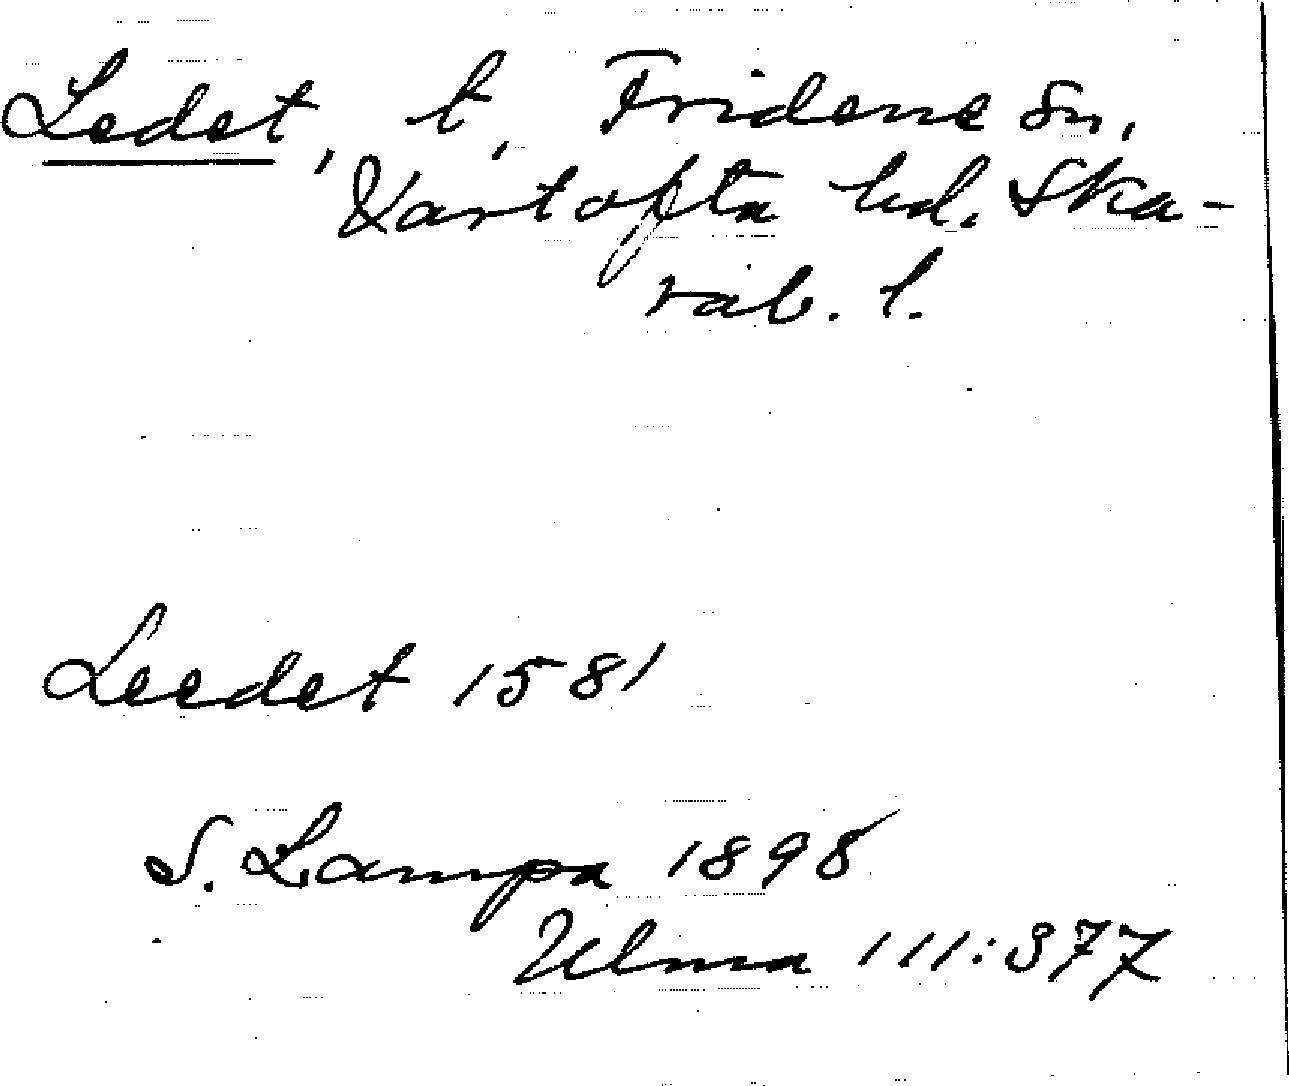 Ledet, t, Fridene sn,
Vartofta hd. Ska-
rab. l.
Leedet 1581
S. Lampa 1898
Ulma 111:377